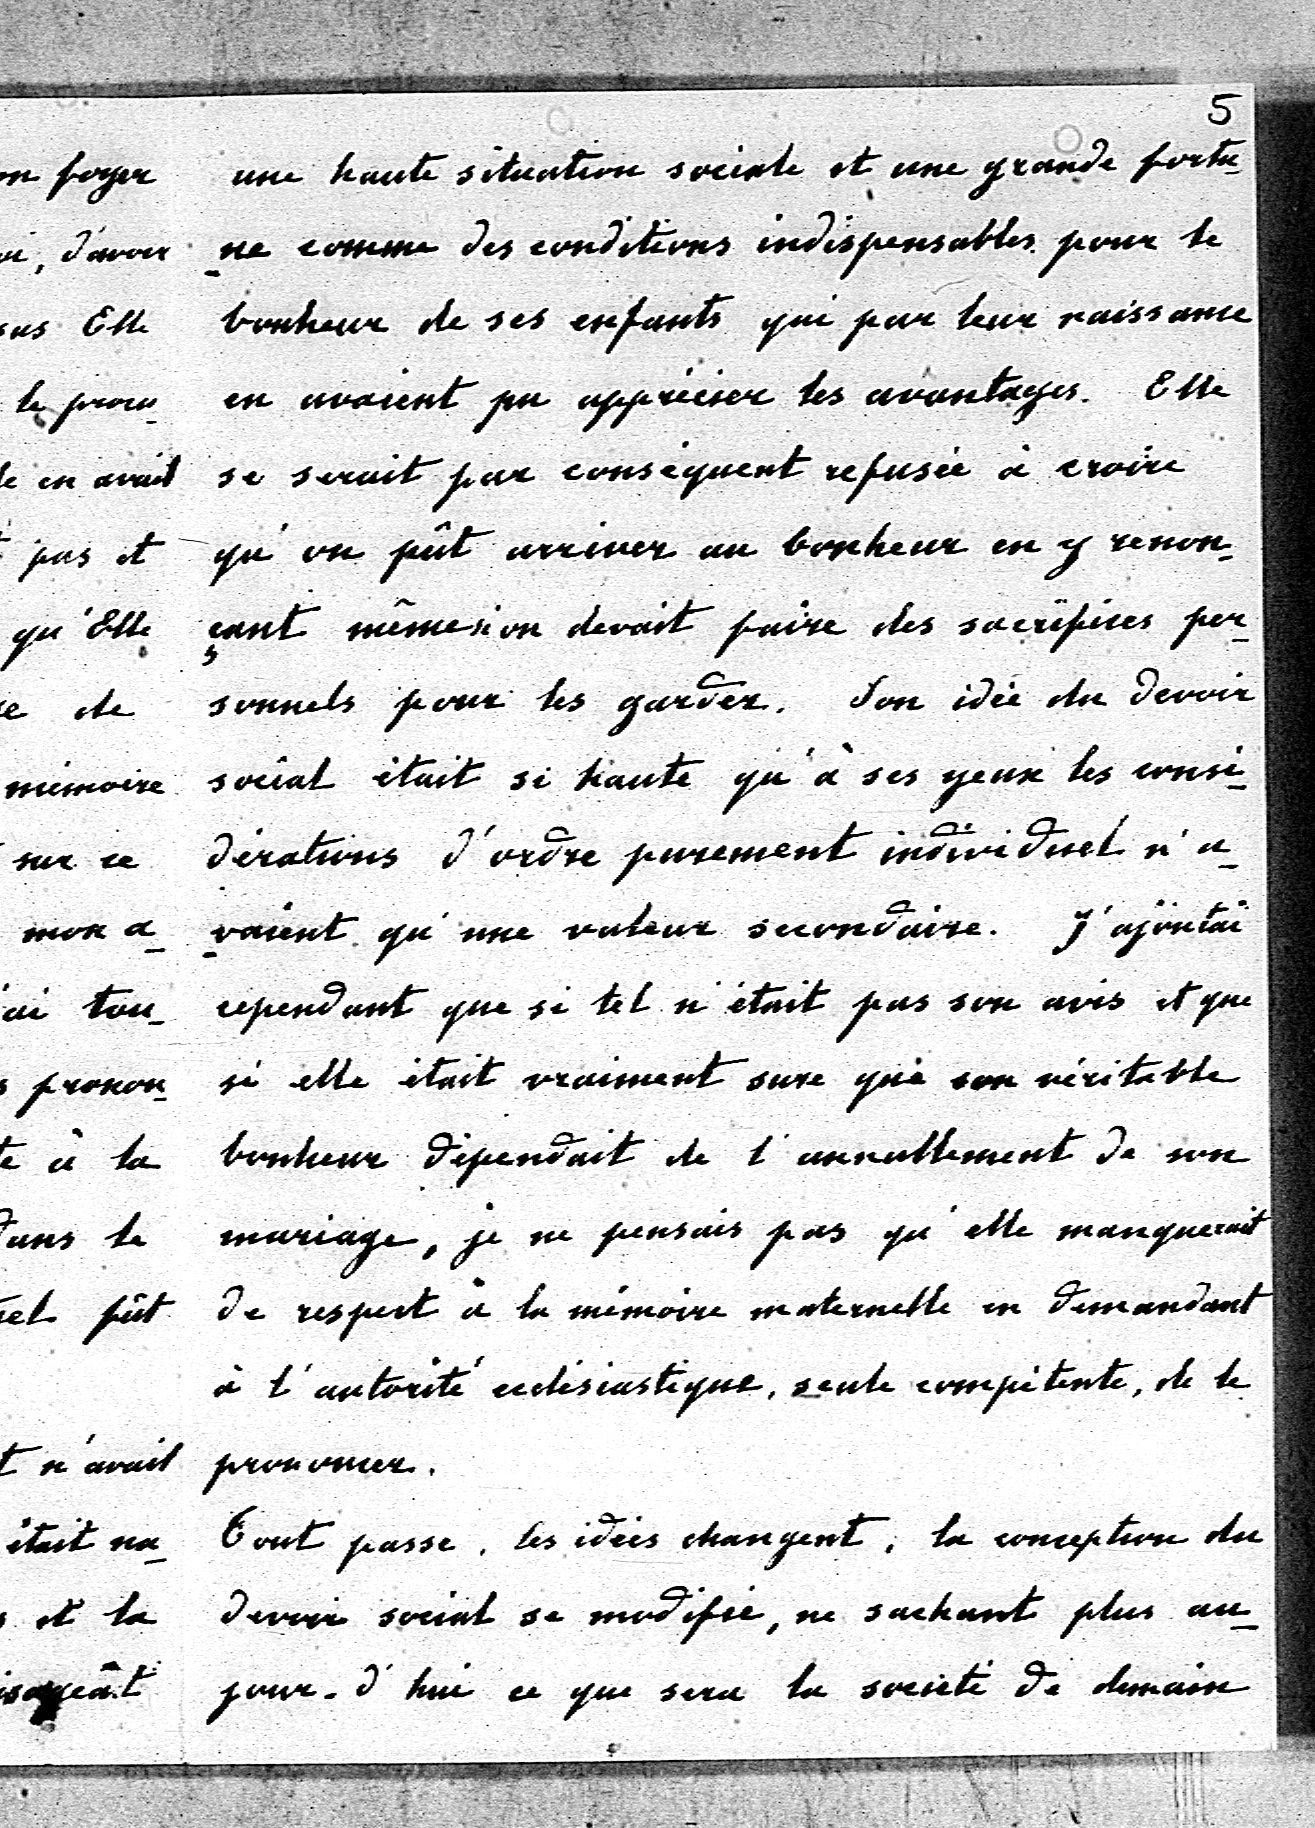 5
on foyer
oi, d'avoir
sus Elle
le procu-
le en avait
pas et
qu'Elle
de
mémoire
sur ce
mon a-
'ai tou-
pronon-
te à la
dans le
fût
n'avait
était na-
et la
une haute situation sociale et une grande fortu-
-ne comme des conditions indispensables pour le
bonheur de ses enfants qui par leur naissance
en avaient pu apprécier les avantages. Elle
se serait par conséquent refusée à croire
qu'on pût arriver au bonheur en y renon-
çant même si on devait faire des sacrifices per-
sonnels pour les garder. Son idée du devoir
social était si haute qu'à ses yeux les consi-
dérations d'ordre purement individuel n'a-
-vaient qu'une valeur secondaire. J'ajoutai
cependant que si tel n'était pas son avis et que
si elle était vraiment sure que son véritable
bonheur dépendait de l'annullement de son
mariage, je ne pensais pas qu'elle manquerait
de respect à la mémoire maternelle en demandant
à l'autorité ecclésiastique, seule compétente, de le
prononcer.
Tout passe, les idées changent, la conception du
devoir social se modifie, ne sachant plus au-
jour-d'hui ce que sera la societé de demain